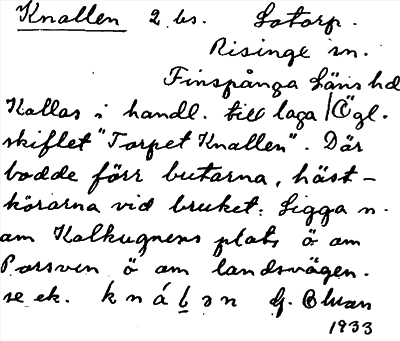 Knallen 2 bs. Lotorp.
Risinge sn.
Finspånga Läns hd
Kallas i handl. till laga / Ögl.
skiftet "Torpet Knallen". Där
bodde förr butarna, häst-
körarna vid bruket. Ligga n.
om Kalkugnens plats ö om
Porsven ö om landsvägen.
se ek. G. Ohman
1933